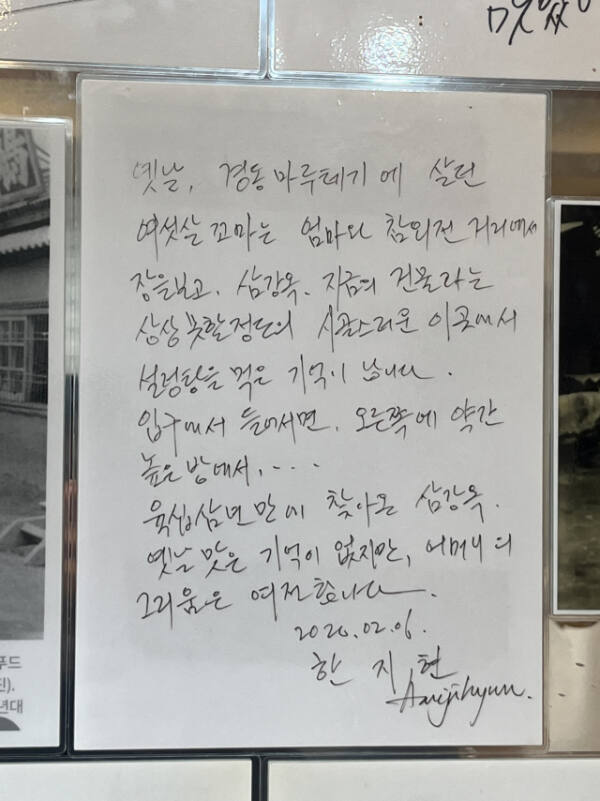 맛있
옛날, 경동 마루테기에 살던
여섯살 꼬마는 엄마와 참외전 거리에서
장을보고, 삼강옥. 지금의 건물과는
상상 못할정도의 시골스러운 이곳에서
설렁탕을 먹은 기억이 납니다.
입구에서 들어서면, 오른쪽에 약간
높은 방에서, ....
육십삼년 만에 찾아온 삼강옥.
옛날 맛은 기억이 없지만, 어머니의
그리움은 여전합니다.
2020.02.06.
한 지 현
Hanjihyun.
푸드
진).
년대